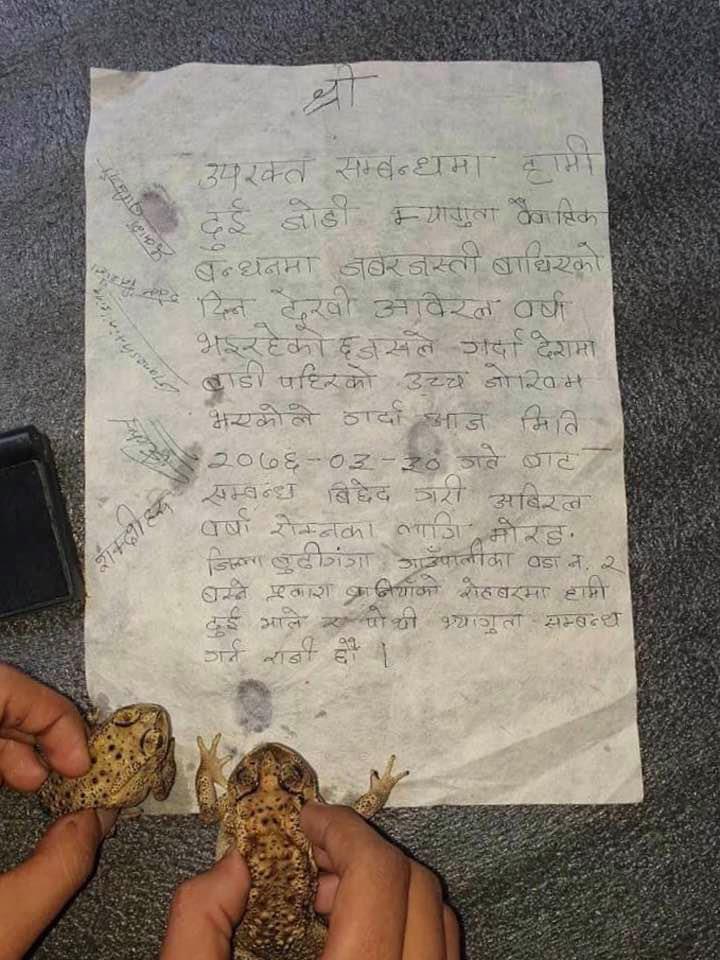 श्री
उपरक्त सम्बन्धमा हामी
दुई जोडी म्यागुता वैवाहिक
बन्धनमा जबरजस्ती बाधिएको
दिन देखी आवेरल वर्षा
भइरहेको हुजसले गर्दा देशमा
बाडी पहिरको उच्च जोखिम
भएकोले गर्दा आज मिति
२०७६-०३-३० गते बाट
सम्बन्ध बिछेद गरी अबिरल
वर्षा रोक्नका लागि मोरङ
जिल्ला बुढीगंगा गाउँपालीका वडा नं. २
बस्ने प्रकाश बानियाँको रोहबरमा हामी
दुई भाले र पोथी भ्यागुता सम्बन्ध
गर्न राजी छौं ।